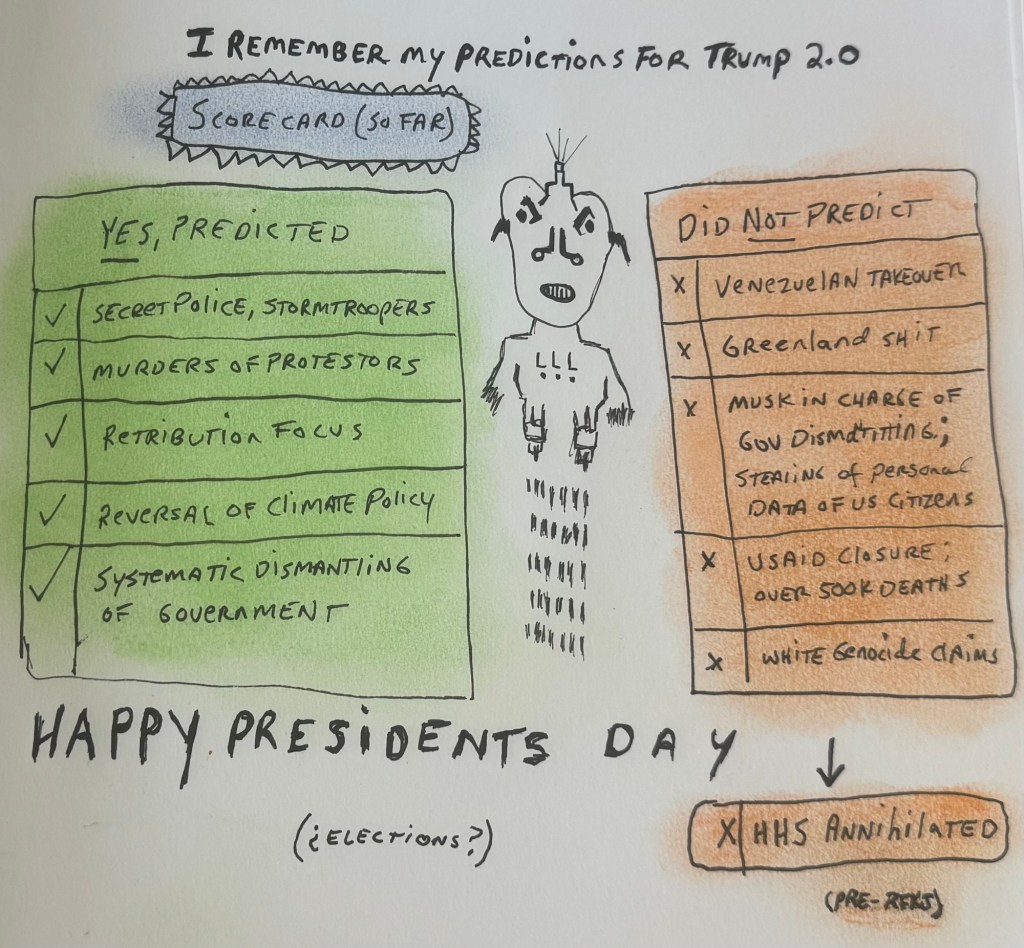 I REMEMBER MY PREDICTIONS FOR TRUMP 2.0
SCORECARD (SO FAR)
YES, PREDICTED
✓ SECRET POLICE, STORMTROOPERS
✓ MURDERS OF PROTESTORS
✓ RETRIBUTION FOCUS
✓ REVERSAL OF CLIMATE POLICY
✓ SYSTEMATIC DISMANTLING
OF GOVERNMENT
DID NOT PREDICT
X VENEZUELAN TAKEOVER
X GREENLAND SHIT
X MUSK IN CHARGE OF
GOV
STEALING OF PERSONAL
DATA OF US CITIZENS
X USAID CLOSURE;
OVER 500K DEATHS
X WHITE GENOCIDE CLAIMS
HAPPY PRESIDENTS DAY
↓
X HHS ANNIHILATED
(¿ELECTIONS?)